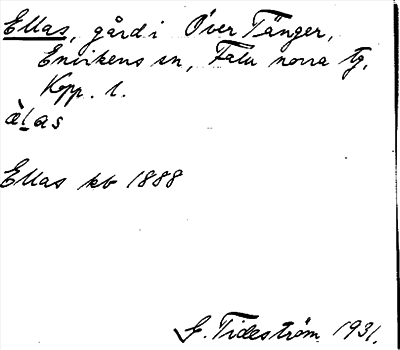 Ellas, gård i Över Tänger,
Envikens sn, Falu norra tg.
Kopp. l.
àlas
Ellas kb 1888
G. Tideström 1931.